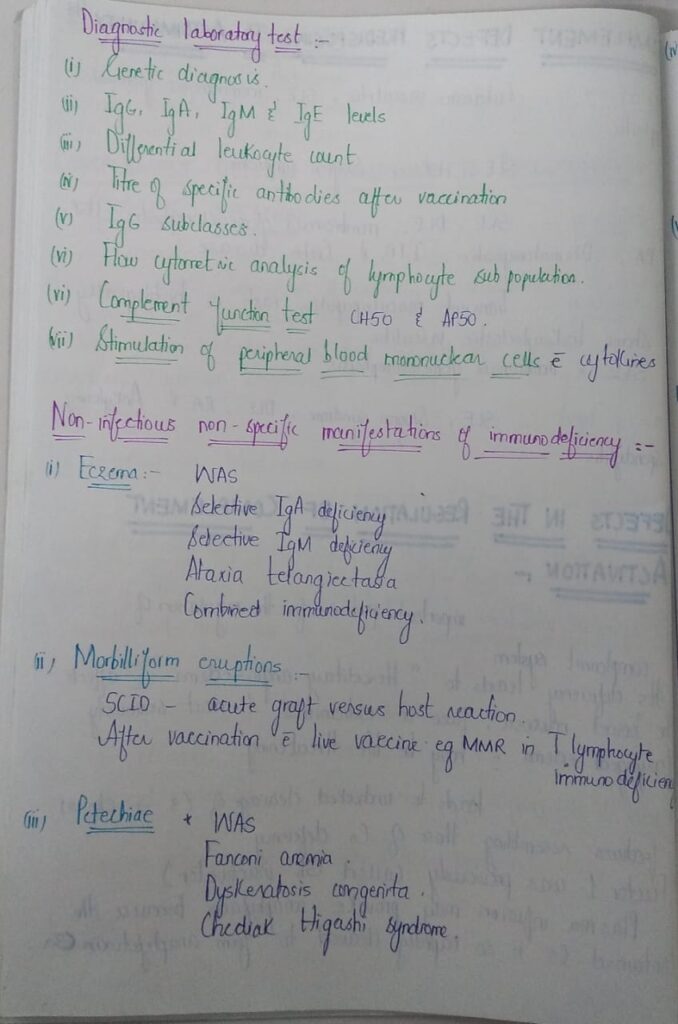 Diagnostic laboratory test :-
(i) Genetic diagnosis.
(ii) IgG, IgA, IgM & IgE levels
(iii) Differential leukocyte count
(iv) Titre of specific antibodies after vaccination
(v) IgG subclasses.
(vi) Flow cytometric analysis of lymphocyte sub population.
(vi) Complement function test CH50 & AP50.
(vii) Stimulation of peripheral blood mononuclear cells c̄ cytokines
Non-infectious non-specific manifestations of immunodeficiency :-
(i) Eczema :- WAS
Selective IgA deficiency
Selective IgM deficiency
Ataxia telangiectasia
Combined immunodeficiency.
(ii) Morbilliform eruptions :-
SCID - acute graft versus host reaction.
After vaccination c̄ live vaccine eg MMR in T lymphocyte
immunodeficiency
(iii) Petechiae * WAS
Fanconi anemia.
Dyskeratosis congenita.
Chediak Higashi syndrome.